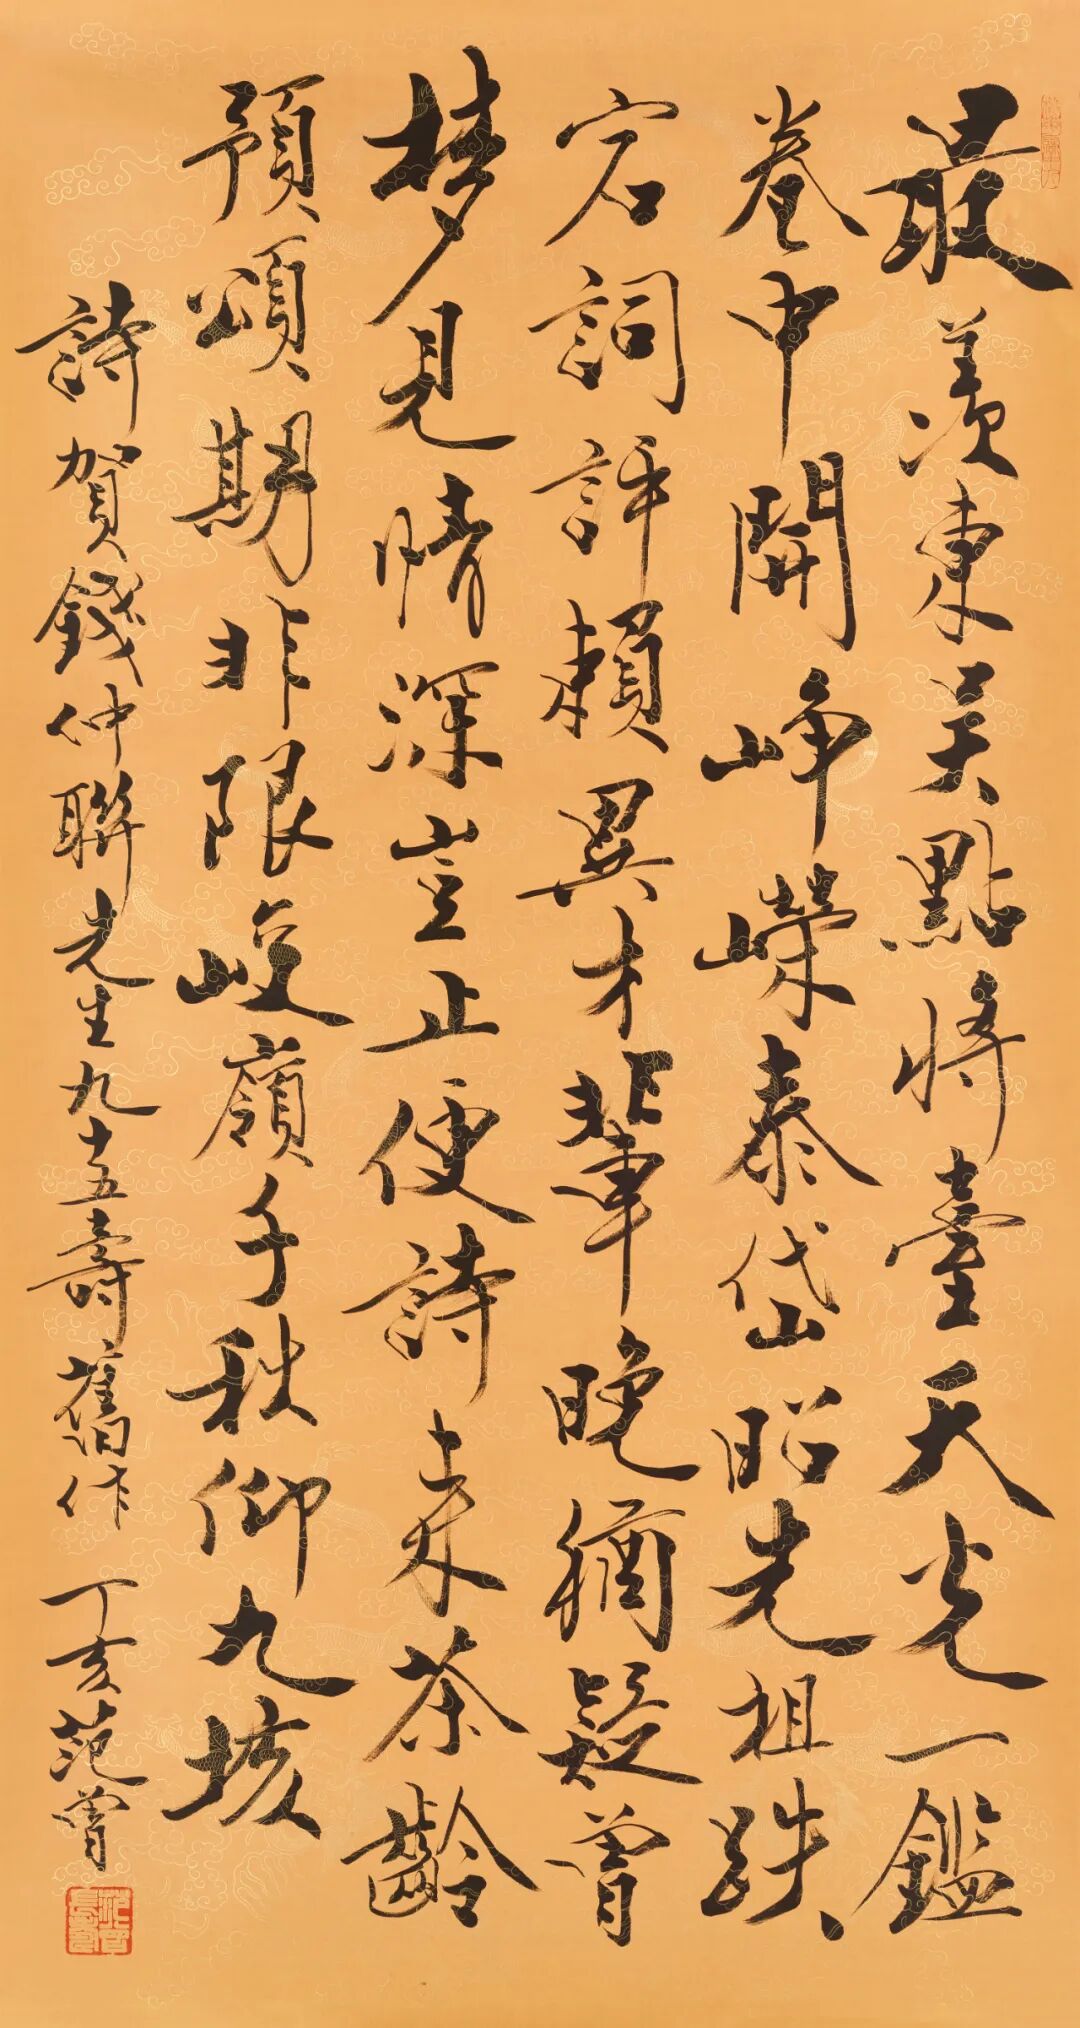 最羡東吴點將臺天光一鑑
卷中開峥嶸泰岱昭先祖跌
宕詞評賴異才輩晚猶疑曾
梦見情深豈止便詩来茶齡
預頌期非限峻嶺千秋仰九垓
詩賀錢仲聯先生九十五壽舊作 丁亥范曾